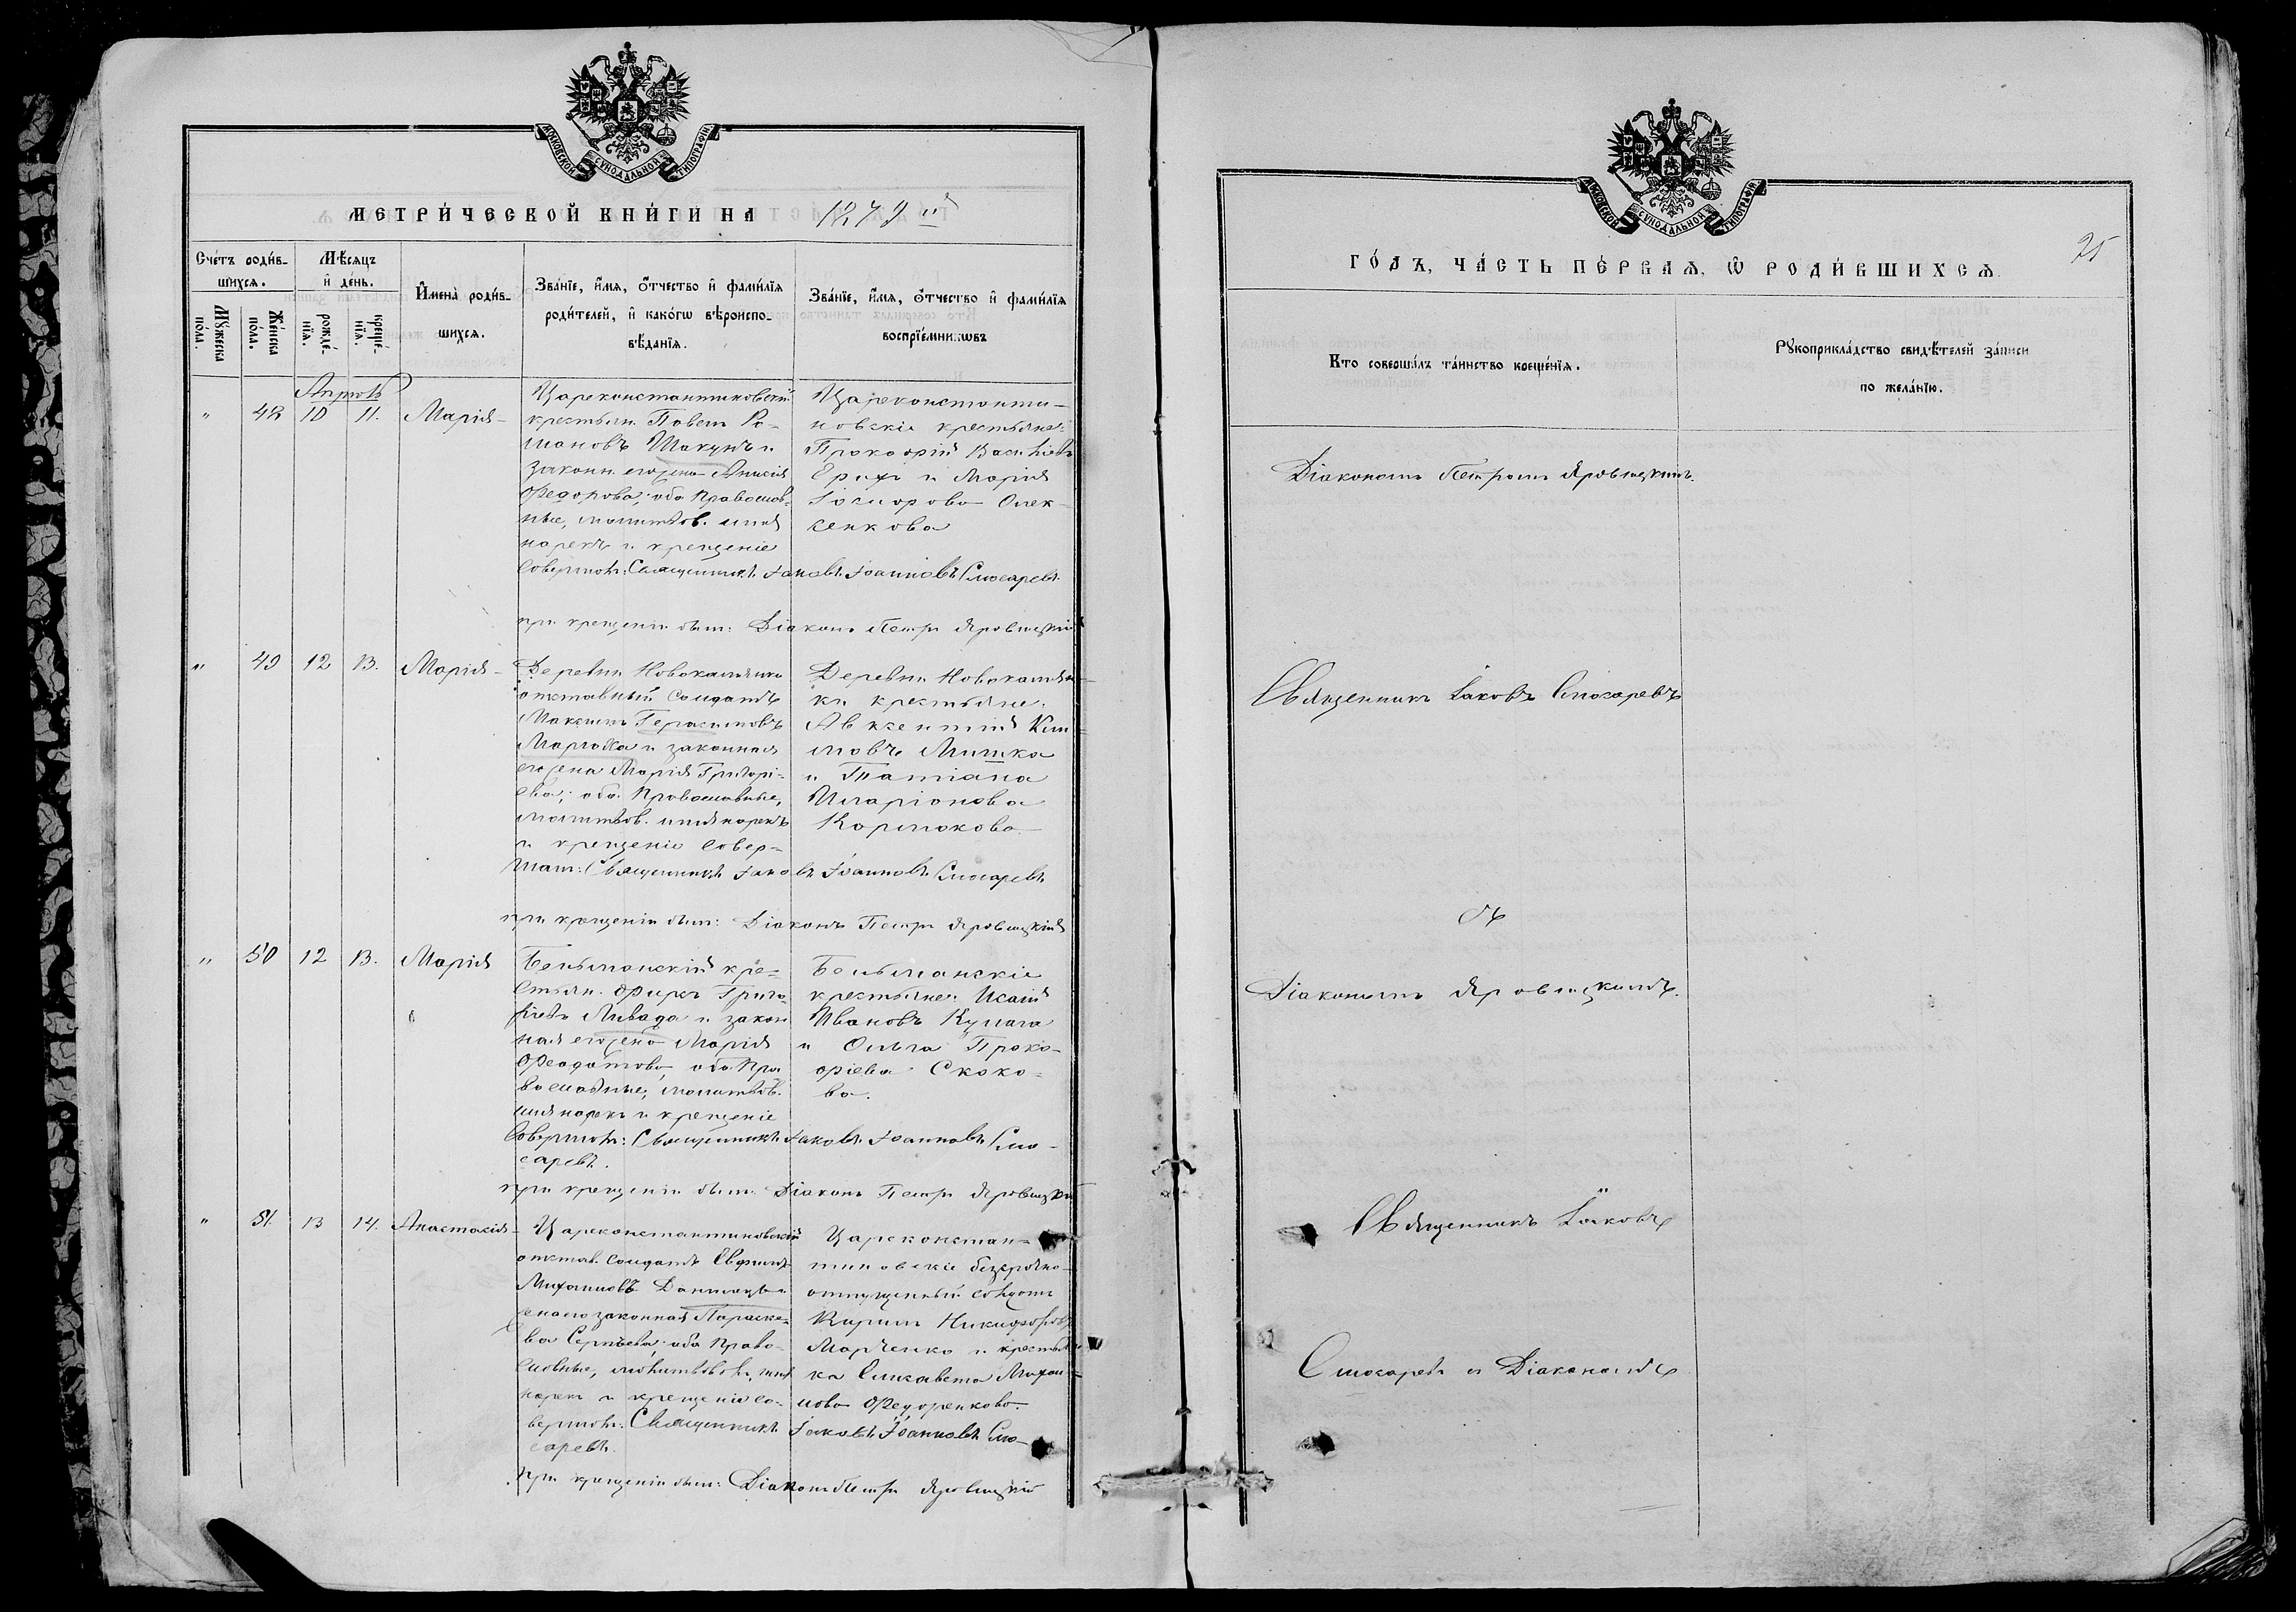 МОСКОВСКОЙ СѴНОДАЛЬНОЙ ТИПОГРАФІИ
МЕТРИ́ЧЕСКОЙ КНИ́ГИ НА 1879й
Сче́тъ роди́в-
шихся.
Мꙋ́жеска по́ла.
Же́нска по́ла.
Мѣ́сяцъ
и҆ де́нь.
рожде́-
нїѧ.
креще́-
нїѧ.
И҆мена̀ роди́в-
шихсѧ.
Зва́нїе, и҆́мѧ, ѻ҆́тчество и҆ фами́лїѧ
роди́телей, и҆ како́гѡ вѣ́роиспо-
вѣ́данїѧ.
Зва́нїе, и҆́мѧ, ѻ҆́тчество и҆ фами́лїѧ
воспрїе́мникѡвъ
Апрѣль
" 48 10 11. Марія
Цареконстантиновскій
крестьян. Павелъ Ро-
мановъ Шакунъ и
законн. его жена Анисія
Федорова; оба Православ-
ные, молитвов. имя
нарекъ и крещеніе
Совершалъ: Священникъ Іаковъ Іоанновъ Слюсаревъ
при крещеніи былъ: Діаконъ Петръ Яровицкій
Цареконстанти-
новскіе крестьяне:
Прокофій Васильевъ
и Марія
Олек-
сенкова
" 49 12 13. Марія
Деревни Новокаменки
отставный Солдатъ
Максимъ Герасимовъ
и законная
его жена Марія Григорі-
ева; оба Православные,
молитвов. имя нарекъ
и крещеніе Совер-
шалъ: Священникъ Іаковъ Іоанновъ Слюсаревъ
при крещеніи былъ: Діаконъ Петръ Яровицкій
Деревни Новокамен-
ки крестьяне:
Авксентій Кли-
мовъ Мишка
и Татіана
Иларіонова
Кормокова
" 50 12 13. Марія
Бельманскій кре-
стьян. Фирсъ Григо-
ріевъ Ливада и закон
ная его жена Марія
Феодотова, оба Пра
вославные, молитвов.
имя нарекъ и крещеніе
Совершалъ: Священникъ Іаковъ Іоанновъ Слю-
саревъ.
при крещеніи былъ: Діаконъ Петръ Яровицкій
Бельманскіе
крестьяне: Исаій
Ивановъ Кулага
и Ольга Проко-
фіева Скоко-
ва.
" 51. 13 14. Анастасія
Цареконстантиновскій
отстав. Солдатъ
Михаиловъ и
жена его законная Параске-
ва Сергѣева; оба Право-
славные, молитвовалъ, имя
нарекъ и крещеніе Со-
вершалъ: Священникъ Іаковъ Іоанновъ Слю-
саревъ.
при крещеніи былъ: Діаконъ Петръ Яровицкій
Цареконстан-
тиновскіе безсрочно-
отпущенный солдатъ
Кирилъ Никифоровъ
Марченко и крестьян
ка Елисавета Михаи-
лова Федоренкова.
МОСКОВСКОЙ СѴНОДАЛЬНОЙ ТИПОГРАФІИ
25
ГО́ДЪ, ЧА́СТЬ ПЕ́РВАѦ, Ѡ҆ РОДИ́ВШИХСѦ.
Кто̀ соверша́лъ та́инство креще́нїѧ.
Рꙋкоприкла́дство свидѣ́телей за́писи
по жела́нїю.
Діакономъ Петромъ Яровицкимъ.
Священникъ Іаковъ Слюсаревъ
съ
Діакономъ Яровицкимъ.
Священникъ Іаковъ
Слюсаревъ и Діакономъ